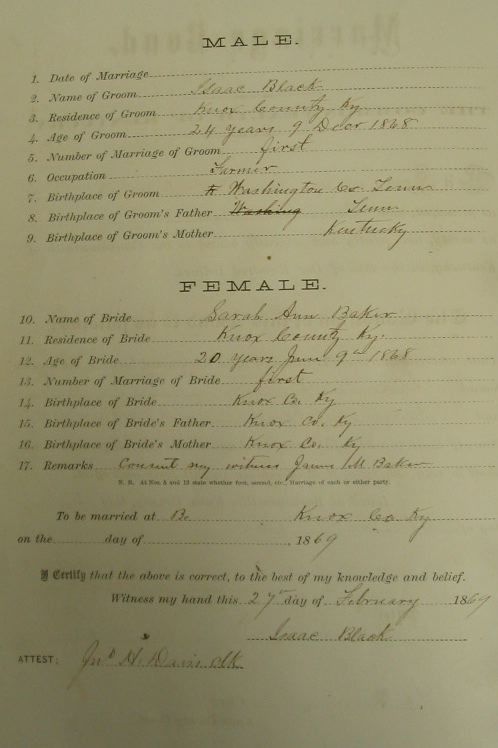 MALE.
1. Date of Marriage
2. Name of Groom Isaac Black
3. Residence of Groom Knox County Ky
4. Age of Groom 24 years 9 Decr 1868
5. Number of Marriage of Groom first
6. Occupation Farmer
7. Birthplace of Groom Washington Co. Tenn
8. Birthplace of Groom's Father Washing Tenn
9. Birthplace of Groom's Mother Kentucky
FEMALE.
10. Name of Bride Sarah Ann Baker
11. Residence of Bride Knox County Ky.
12. Age of Bride 20 years June 9th 1868
13. Number of Marriage of Bride first
14. Birthplace of Bride Knox Co. Ky
15. Birthplace of Bride's Father Knox Co. Ky
16. Birthplace of Bride's Mother Knox Co. Ky
17. Remarks Consent my witness James M Baker
N. B. At Nos. 5 and 13 state whether first, second, etc., Marriage of each or either party.
To be married at B. Knox Co. Ky
on the day of 1869
I Certify that the above is correct, to the best of my knowledge and belief.
Witness my hand this 27th day of February 1869
Isaac Black
ATTEST: Jno H. Davis Clk